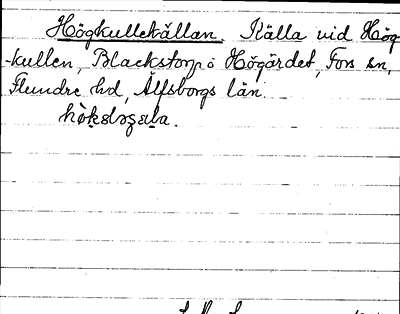 Högkullekällan. Källa vid Hög-
kullen, Blackstorp i Högärdet, Fors sn,
Flundre hd, Älfsborgs län.